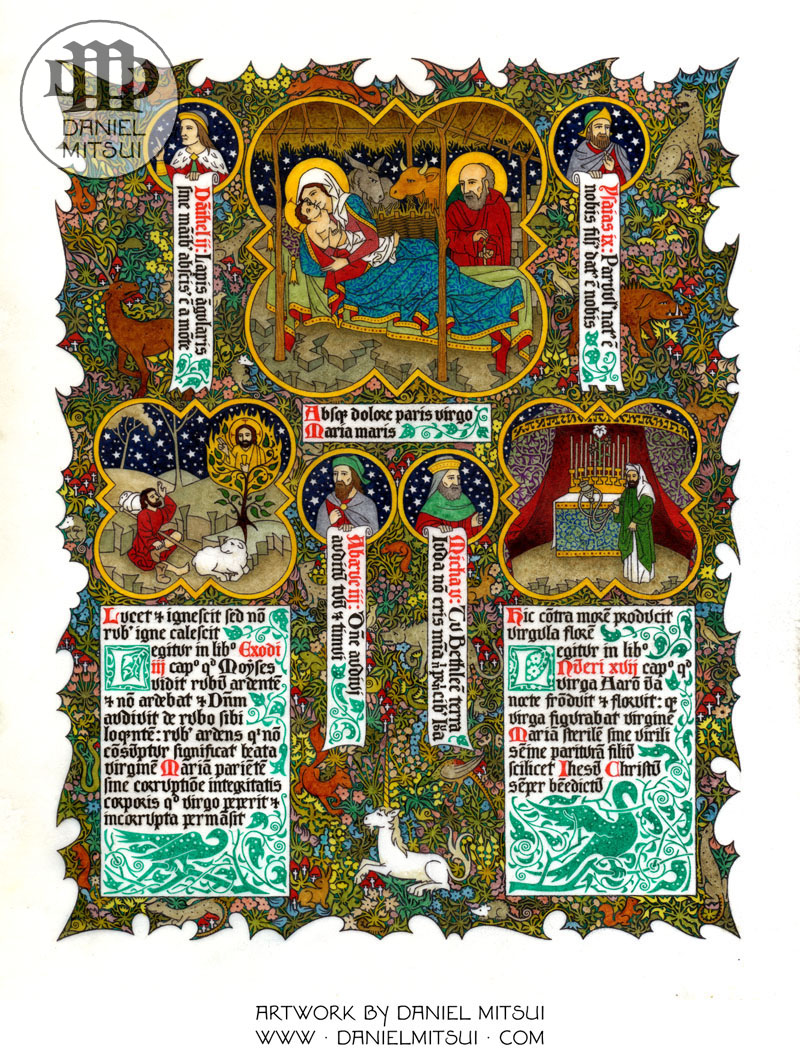 DANIEL
MITSUI
Dāihel ij: Lapis āgularis
sine māib' abscis' ē a mōte
Ysaias ix: Parvul' nat' ē
nobis fili' dat' ē nobis
Absq; dolore paris virgo
Maria maris
Abacuc iij: Dn̄e audivi
auditū tuū & timui
Micha v: Tu Bethleē terra
Iuda nō eris
Lucet & ignescit sed nō
rub' igne calescit
Legitur in lib° Exodi
iij cap° q̄ Moyses
vidit rubū ardentē
& nō ardebat & Dn̄m
audivit de rubo sibi
loq̄ntē: rub' ardens q' nō
cōsūptur significat beata
virginē Mariā pariētē
sine corruptiōe integritatis
corporis q̄ virgo peperit &
incorrupta permāsit
Hic cōtra morē producit
virgula florē
Legitur in lib°
Nūeri xvij cap° q̄
virga Aarō ūa
nocte frōduit & floruit: q̄
virga figurabat virginē
Mariā sterilē sine virili
sēine pariturā filiū
scilicet Ihesū Christū
sēper bēedictū
ARTWORK BY DANIEL MITSUI
WWW · DANIELMITSUI · COM